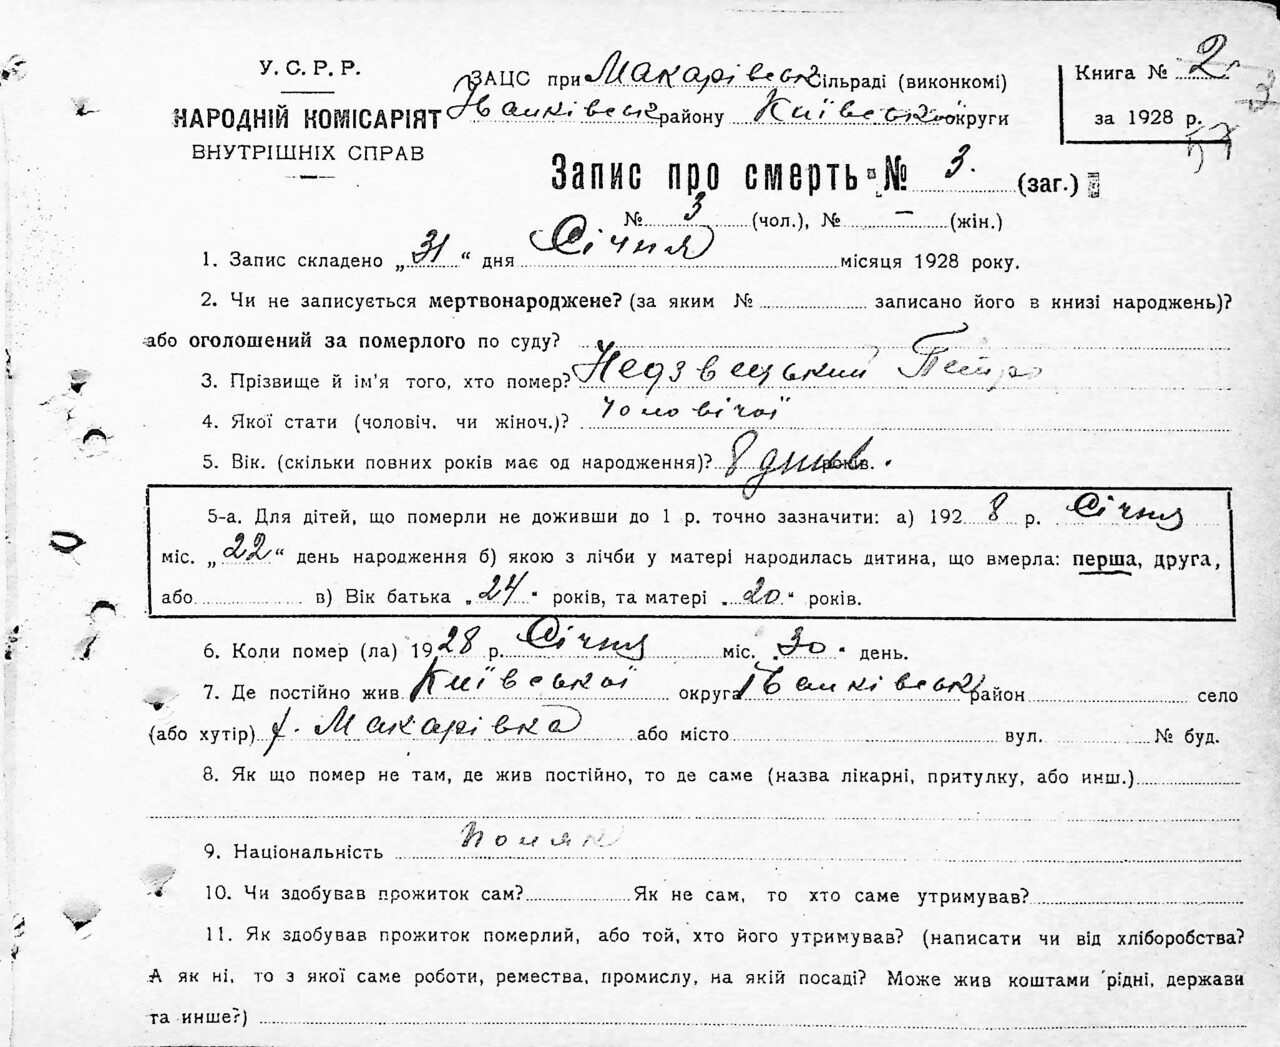 У. С. Р. Р.
НАРОДНІЙ КОМІСАРІЯТ
ВНУТРІШНІХ СПРАВ
ЗАЦС при Макарівськ сільраді (виконкомі)
Іванківськ району Київськ округи
Книга № 2
за 1928 р.
57
Запис про смерть № 3. (заг.)
№ 3 (чол.), № – (жін.)
1. Запис складено „31“ дня Січня місяця 1928 року.
2. Чи не записується мертвонароджене? (за яким № записано його в книзі народжень)?
або оголошений за померлого по суду?
3. Прізвище й ім'я того, хто помер? Недзвецький Петро
4. Якої стати (чоловіч. чи жіноч.)? Чоловічої
5. Вік. (скільки повних років має од народження)? 8 днів. років.
5-а. Для дітей, що померли не доживши до 1 р. точно зазначити: а) 1928 р. Січня
міс. „22“ день народження б) якою з лічби у матері народилась дитина, що вмерла: перша, друга,
або в) Вік батька „24“ років, та матері „20“ років.
6. Коли помер (ла) 1928 р. Січня міс. „30“ день.
7. Де постійно жив Київської округа Іванківськ район село
(або хутір) х. Макарівка або місто вул. № буд.
8. Як що помер не там, де жив постійно, то де саме (назва лікарні, притулку, або инш.)
9. Національність поляк
10. Чи здобував прожиток сам? Як не сам, то хто саме утримував?
11. Як здобував прожиток померлий, або той, хто його утримував? (написати чи від хліборобства?
А як ні, то з якої саме роботи, ремества, промислу, на якій посаді? Може жив коштами рідні, держави
та инше?)